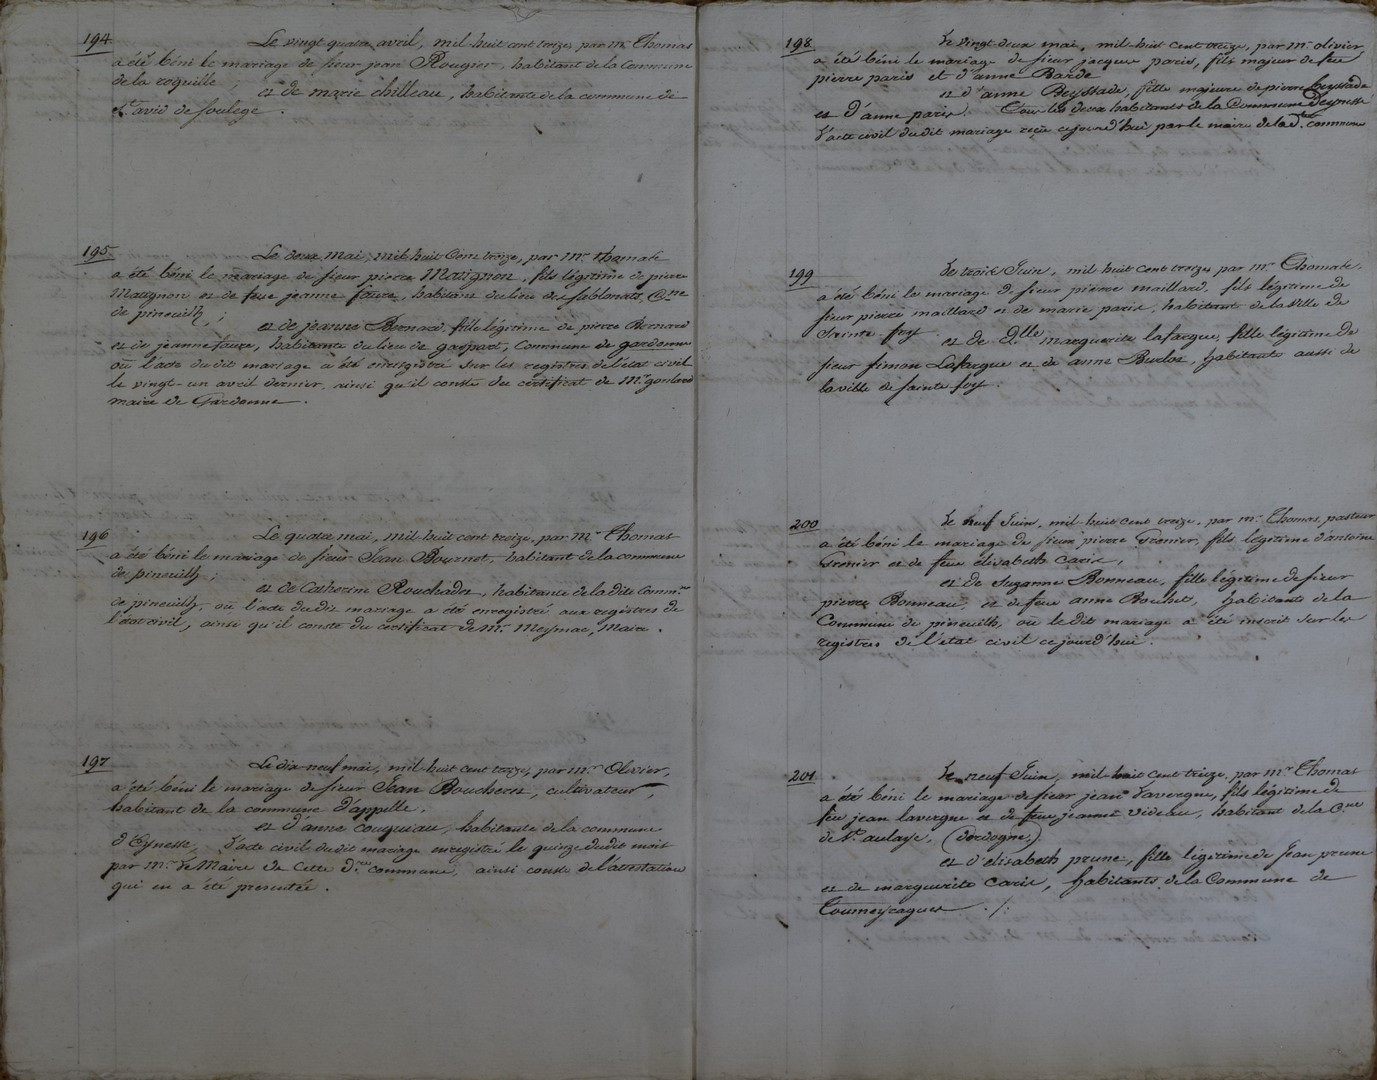 194
Le vingt quatre avril, mil huit cent treize, par mr. Thomas
a été béni le mariage de sieur jean Rougier, habitant de la Commune
de la roquille;
et de marie chilleau, habitante de la commune de
St. avid de soulege.
195
Le deux mai, mil huit Cent treize, par mr. thomas
a été béni le mariage de sieur pierre Matignon, fils légitime de pierre
Matignon et de feue jeanne faure, habitant du lieu des sablonats, Cne
de pineuilh;
et de jeanne Bernard, fille légitime de pierre Bernard
et de jeanne faure, habitante du lieu de gaspart, Commune de gardonne
où l'acte du dit mariage a été enregistré sur les registres de l'état civil
le vingt-un avril dernier, ainsi qu'il conste du certificat de Mr.
maire de Gardonne.
196
Le quatre mai, mil huit cent treize, par mr. Thomas
a été béni le mariage de sieur Jean Bournet, habitant de la commune
de pineuilh;
et de Catherine Rouchador, habitante de la dite Comm.ne
de pineuilh, où l'acte du dit mariage a été enregistré aux registres de
l'état civil, ainsi qu'il conste du certificat de Mr. Meymac, Maire.
197
Le dix-neuf mai, mil-huit cent treize, par mr. Olivier,
a été béni le mariage de sieur Jean Boucheres, cultivateur,
habitant de la commune d'appelle,
et d'anne couquiau, habitante de la commune
d'Eynesse, l'acte civil du dit mariage enregistré le quinze du dit mois
par mr. le Maire de Cette d.te commune, ainsi conste de l'attestation
qui en a été presentée.
198
Le vingt-deux mai, mil-huit cent treize, par mr. olivier,
a été béni le mariage de sieur jacques paris, fils majeur de feu
pierre paris et d'anne Barde
et d'anne Beyssade, fille majeure de pierre beyssade
et d'anne paris. Tous les deux habitants de la Commune d'eynesse
l'acte civil du dit mariage reçu cejourd'hui par le maire de la de. commune
199
Le trois Juin, mil huit cent treize, par mr. Thomas,
a été béni le mariage de sieur pierre maillard, fils légitime de
sieur pierre maillard et de marie paris, habitant de la Ville de
Sainte foy.
et de dlle. marguerite lafargue, fille légitime de
sieur simon Lafargue et de anne Burlos, habitante aussi de
la ville de sainte foy.
200
Le neuf Juin, mil-huit cent treize, par mr. Thomas, pasteur
a été béni le mariage de sieur pierre Grenier, fils légitime d'antoine
Grenier et de feue élisabeth Caris,
et de Suzanne Bonneau, fille légitime de sieur
pierre Bonneau, et de feue anne Bouhet, habitants de la
Commune de pineuilh, où le dit mariage a été inscrit sur les
registres de l'état civil ce jourd'hui.
201
Le neuf Juin, mil-huit cent treize, par mr. Thomas
a été béni le mariage de sieur jean Lavergne, fils légitime de
feu jean lavergne et de feue jeanne Videau, habitant de la Cne
de St. aulaye, (Dordogne,)
et d'élisabeth prune, fille légitime de Jean prune
et de marguerite Caris, habitants de la Commune de
Toumeyragues ./: